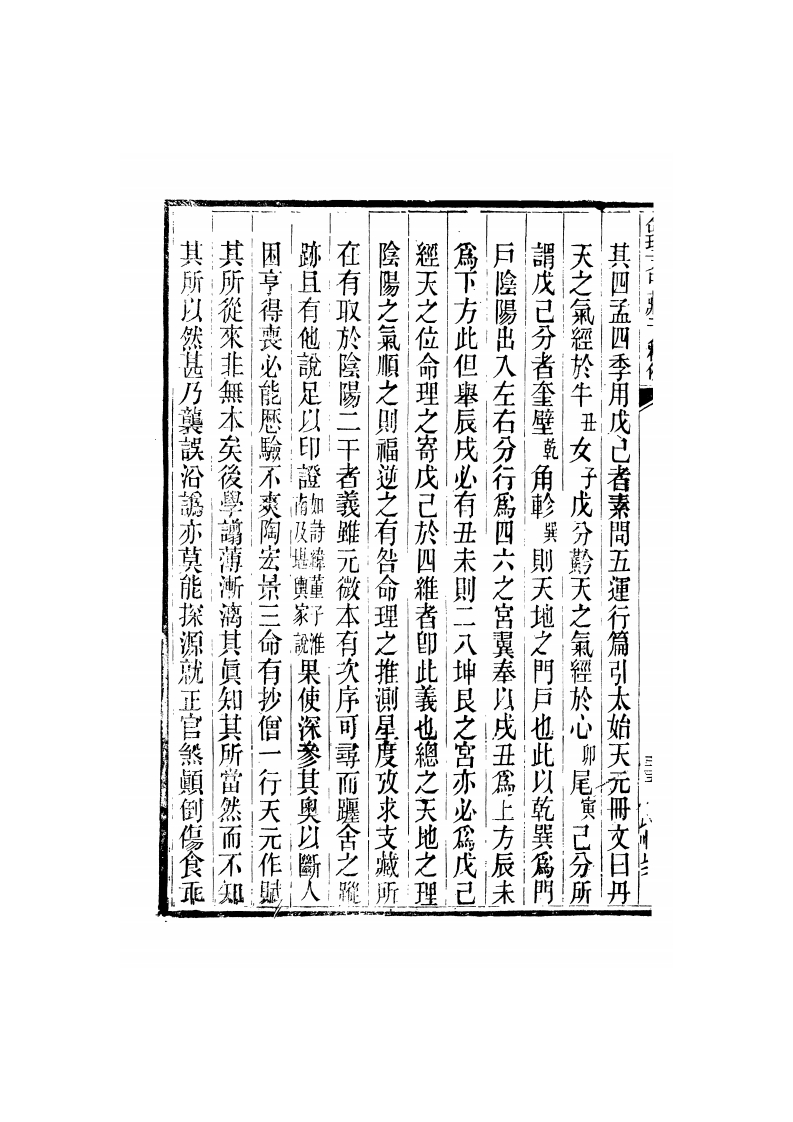 其四孟四季用戊己者素問五運行篇引太始天元冊文曰丹
天之氣經於牛丑女子戊分黅天之氣經於心卯尾寅己分所
謂戊己分者奎壁乾角軫巽則天地之門戸也此以乾巽爲門
戸陰陽出入左右分行爲四六之宮翼奉以戌丑爲上方辰未
爲下方此但舉辰戌必有丑未則二八坤艮之宮亦必爲戊己
經天之位命理之寄戊己於四維者卽此義也總之天地之理
陰陽之氣順之則福逆之有咎命理之推測星度攷求支藏所
在有取於陰陽二干者義雖元微本有次序可尋而躔舍之蹤
跡且有他說足以印證如詩緯董子淮南及堪輿家說果使深參其奧以斷人
困亨得喪必能歴驗不爽陶宏景三命有抄僧一行天元作賦
其所從來非無本矣後學譾薄漸漓其眞知其所當然而不知
其所以然甚乃襲誤沿譌亦莫能探源就正官煞顚倒傷食乖